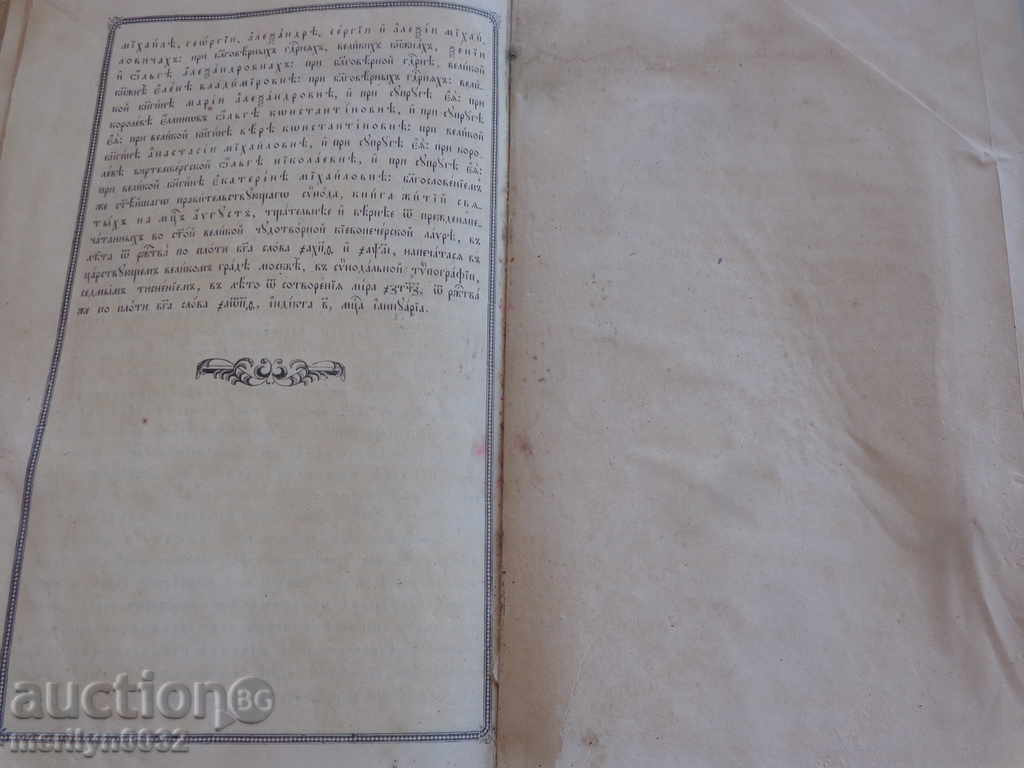 мїхаи́лѣ, геѡ́ргїи, а҆леѯа́ндрѣ, се́ргїи и҆ а҆леѯі́и мїхаи́-
ловичахъ: при бл҃говѣ́рныхъ гдⷭ҇рняхъ, вели́кихъ кнѧжна́хъ, ѯе́нїи
и҆ ѻ҆́льгѣ а҆леѯа́ндровнахъ: при бл҃говѣ́рной гдⷭ҇рнѣ, вели́кой
кнѧжнѣ̀ є҆ле́нѣ влади́мїровнѣ: при бл҃говѣ́рныхъ гдⷭ҇рняхъ: вели́-
кой кнѧги́нѣ марі́и а҆леѯа́ндровнѣ, и҆ при сꙋпрꙋ́гѣ є҆ѧ̀: при
короле́вѣ є҆́ллинѡвъ ѻ҆́льгѣ кѡнстанті́новнѣ, и҆ при сꙋпрꙋ́гѣ
є҆ѧ̀: при вели́кой кнѧги́нѣ вѣ́рѣ кѡнстанті́новнѣ: при вели́кой
кнѧги́нѣ а҆настасі́и мїха́йловнѣ, и҆ при сꙋпрꙋ́гѣ є҆ѧ̀: при коро-
ле́вѣ виртембе́ргской ѻ҆́льгѣ нїкола́евнѣ, и҆ при сꙋпрꙋ́гѣ є҆ѧ̀:
при вели́кой кнѧги́нѣ є҆катери́нѣ мїха́йловнѣ: благослове́нїемъ
же ст҃ѣ́йшагѡ прави́тельствꙋющагѡ сѷно́да, кни́га житі́й свѧ-
ты́хъ на мцⷭ҇ъ а҆́ѵгꙋстъ, тща́тельнѣе и҆ вѣ́рнѣе ѿ преждена́пе-
ча́танныхъ во ст҃о́й вели́кой чꙋдотво́рной кїевопече́рской ла́ѵрѣ, въ
лѣ̑та ѿ рⷤ҇тва̀ по пло́ти бг҃а сло́ва и҆ напеча́тасѧ въ
ца́рствꙋющемъ вели́комъ гра́дѣ москвѣ̀, въ сѷнода́льной тѷпогра́фїи,
седмы́мъ тисне́нїемъ, въ лѣ́то ѿ сотворе́нїѧ мі́ра ҂зт҃ч҃в, ѿ рⷤ҇тва̀
же по пло́ти бг҃а сло́ва ҂аѿпд, і҆ндї́кта в҃і, мцⷭ҇а і҆аннꙋа́рїа.
auction BG
merilyn0032